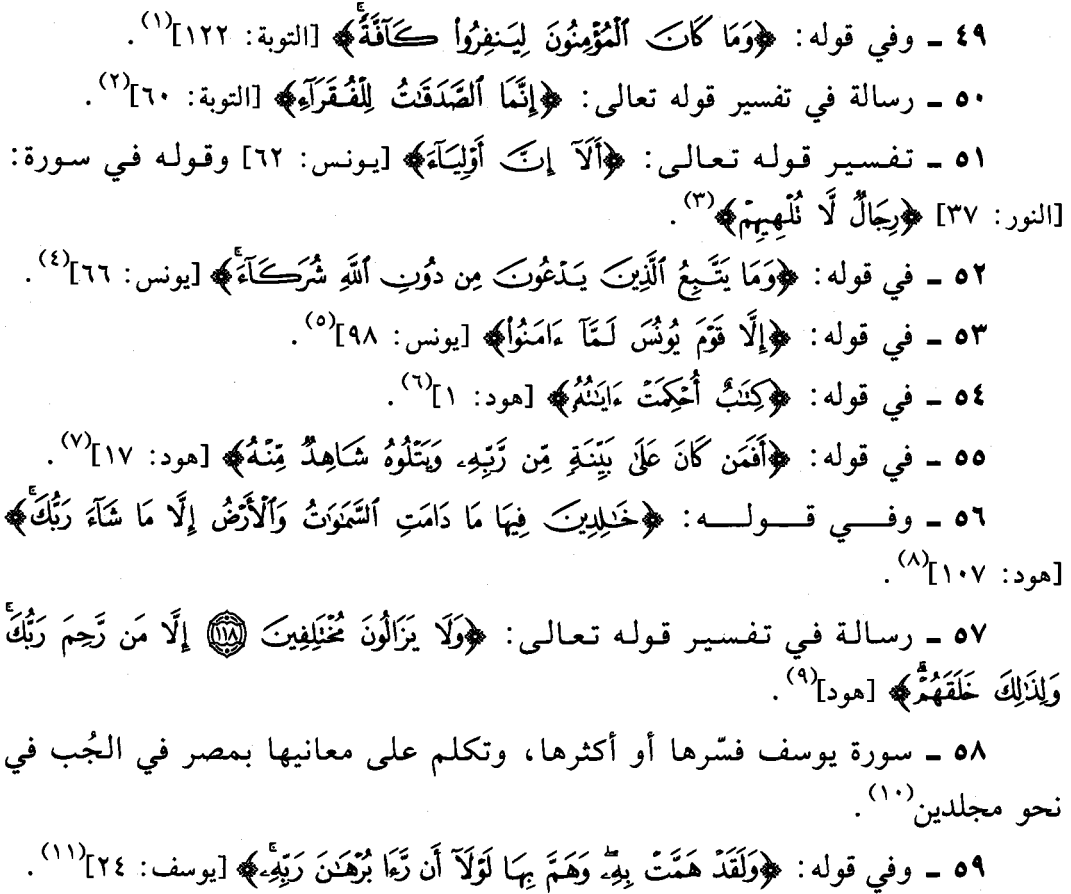 ٤٩ ـ وفي قوله: ﴿وَمَا كَانَ ٱلْمُؤْمِنُونَ لِيَنفِرُوا۟ كَآفَّةً ۚ﴾ [التوبة: ١٢٢]⁽¹⁾.
٥٠ ـ رسالة في تفسير قوله تعالى: ﴿إِنَّمَا ٱلصَّدَقَٰتُ لِلْفُقَرَآءِ﴾ [التوبة: ٦٠]⁽٢⁾.
٥١ ـ تفسير قوله تعالى: ﴿أَلَآ إِنَّ أَوْلِيَآءَ﴾ [يونس: ٦٢] وقوله في سورة:
[النور: ٣٧] ﴿رِجَالٌ لَّا تُلْهِيهِمْ﴾⁽٣⁾.
٥٢ ـ في قوله: ﴿وَمَا يَتَّبِعُ ٱلَّذِينَ يَدْعُونَ مِن دُونِ ٱللَّهِ شُرَكَآءَ ۚ﴾ [يونس: ٦٦]⁽٤⁾.
٥٣ ـ في قوله: ﴿إِلَّا قَوْمَ يُونُسَ لَمَّآ ءَامَنُوا۟﴾ [يونس: ٩٨]⁽٥⁾.
٥٤ ـ في قوله: ﴿كِتَٰبٌ أُحْكِمَتْ ءَايَٰتُهُۥ﴾ [هود: ١]⁽٦⁾.
٥٥ ـ في قوله: ﴿أَفَمَن كَانَ عَلَىٰ بَيِّنَةٍ مِّن رَّبِّهِۦ وَيَتْلُوهُ شَاهِدٌ مِّنْهُ﴾ [هود: ١٧]⁽٧⁾.
٥٦ ـ وفي قوله: ﴿خَٰلِدِينَ فِيهَا مَا دَامَتِ ٱلسَّمَٰوَٰتُ وَٱلْأَرْضُ إِلَّا مَا شَآءَ رَبُّكَ ۚ﴾
[هود: ١٠٧]⁽٨⁾.
٥٧ ـ رسالة في تفسير قوله تعالى: ﴿وَلَا يَزَالُونَ مُخْتَلِفِينَ ۝١١٨ إِلَّا مَن رَّحِمَ رَبُّكَ ۚ
وَلِذَٰلِكَ خَلَقَهُمْ ۗ﴾ [هود]⁽٩⁾.
٥٨ ـ سورة يوسف فسّرها أو أكثرها، وتكلم على معانيها بمصر في الجُب في
نحو مجلدين⁽١٠⁾.
٥٩ ـ وفي قوله: ﴿وَلَقَدْ هَمَّتْ بِهِۦ ۖ وَهَمَّ بِهَا لَوْلَآ أَن رَّءَا بُرْهَٰنَ رَبِّهِۦ ۚ﴾ [يوسف: ٢٤]⁽١١⁾.